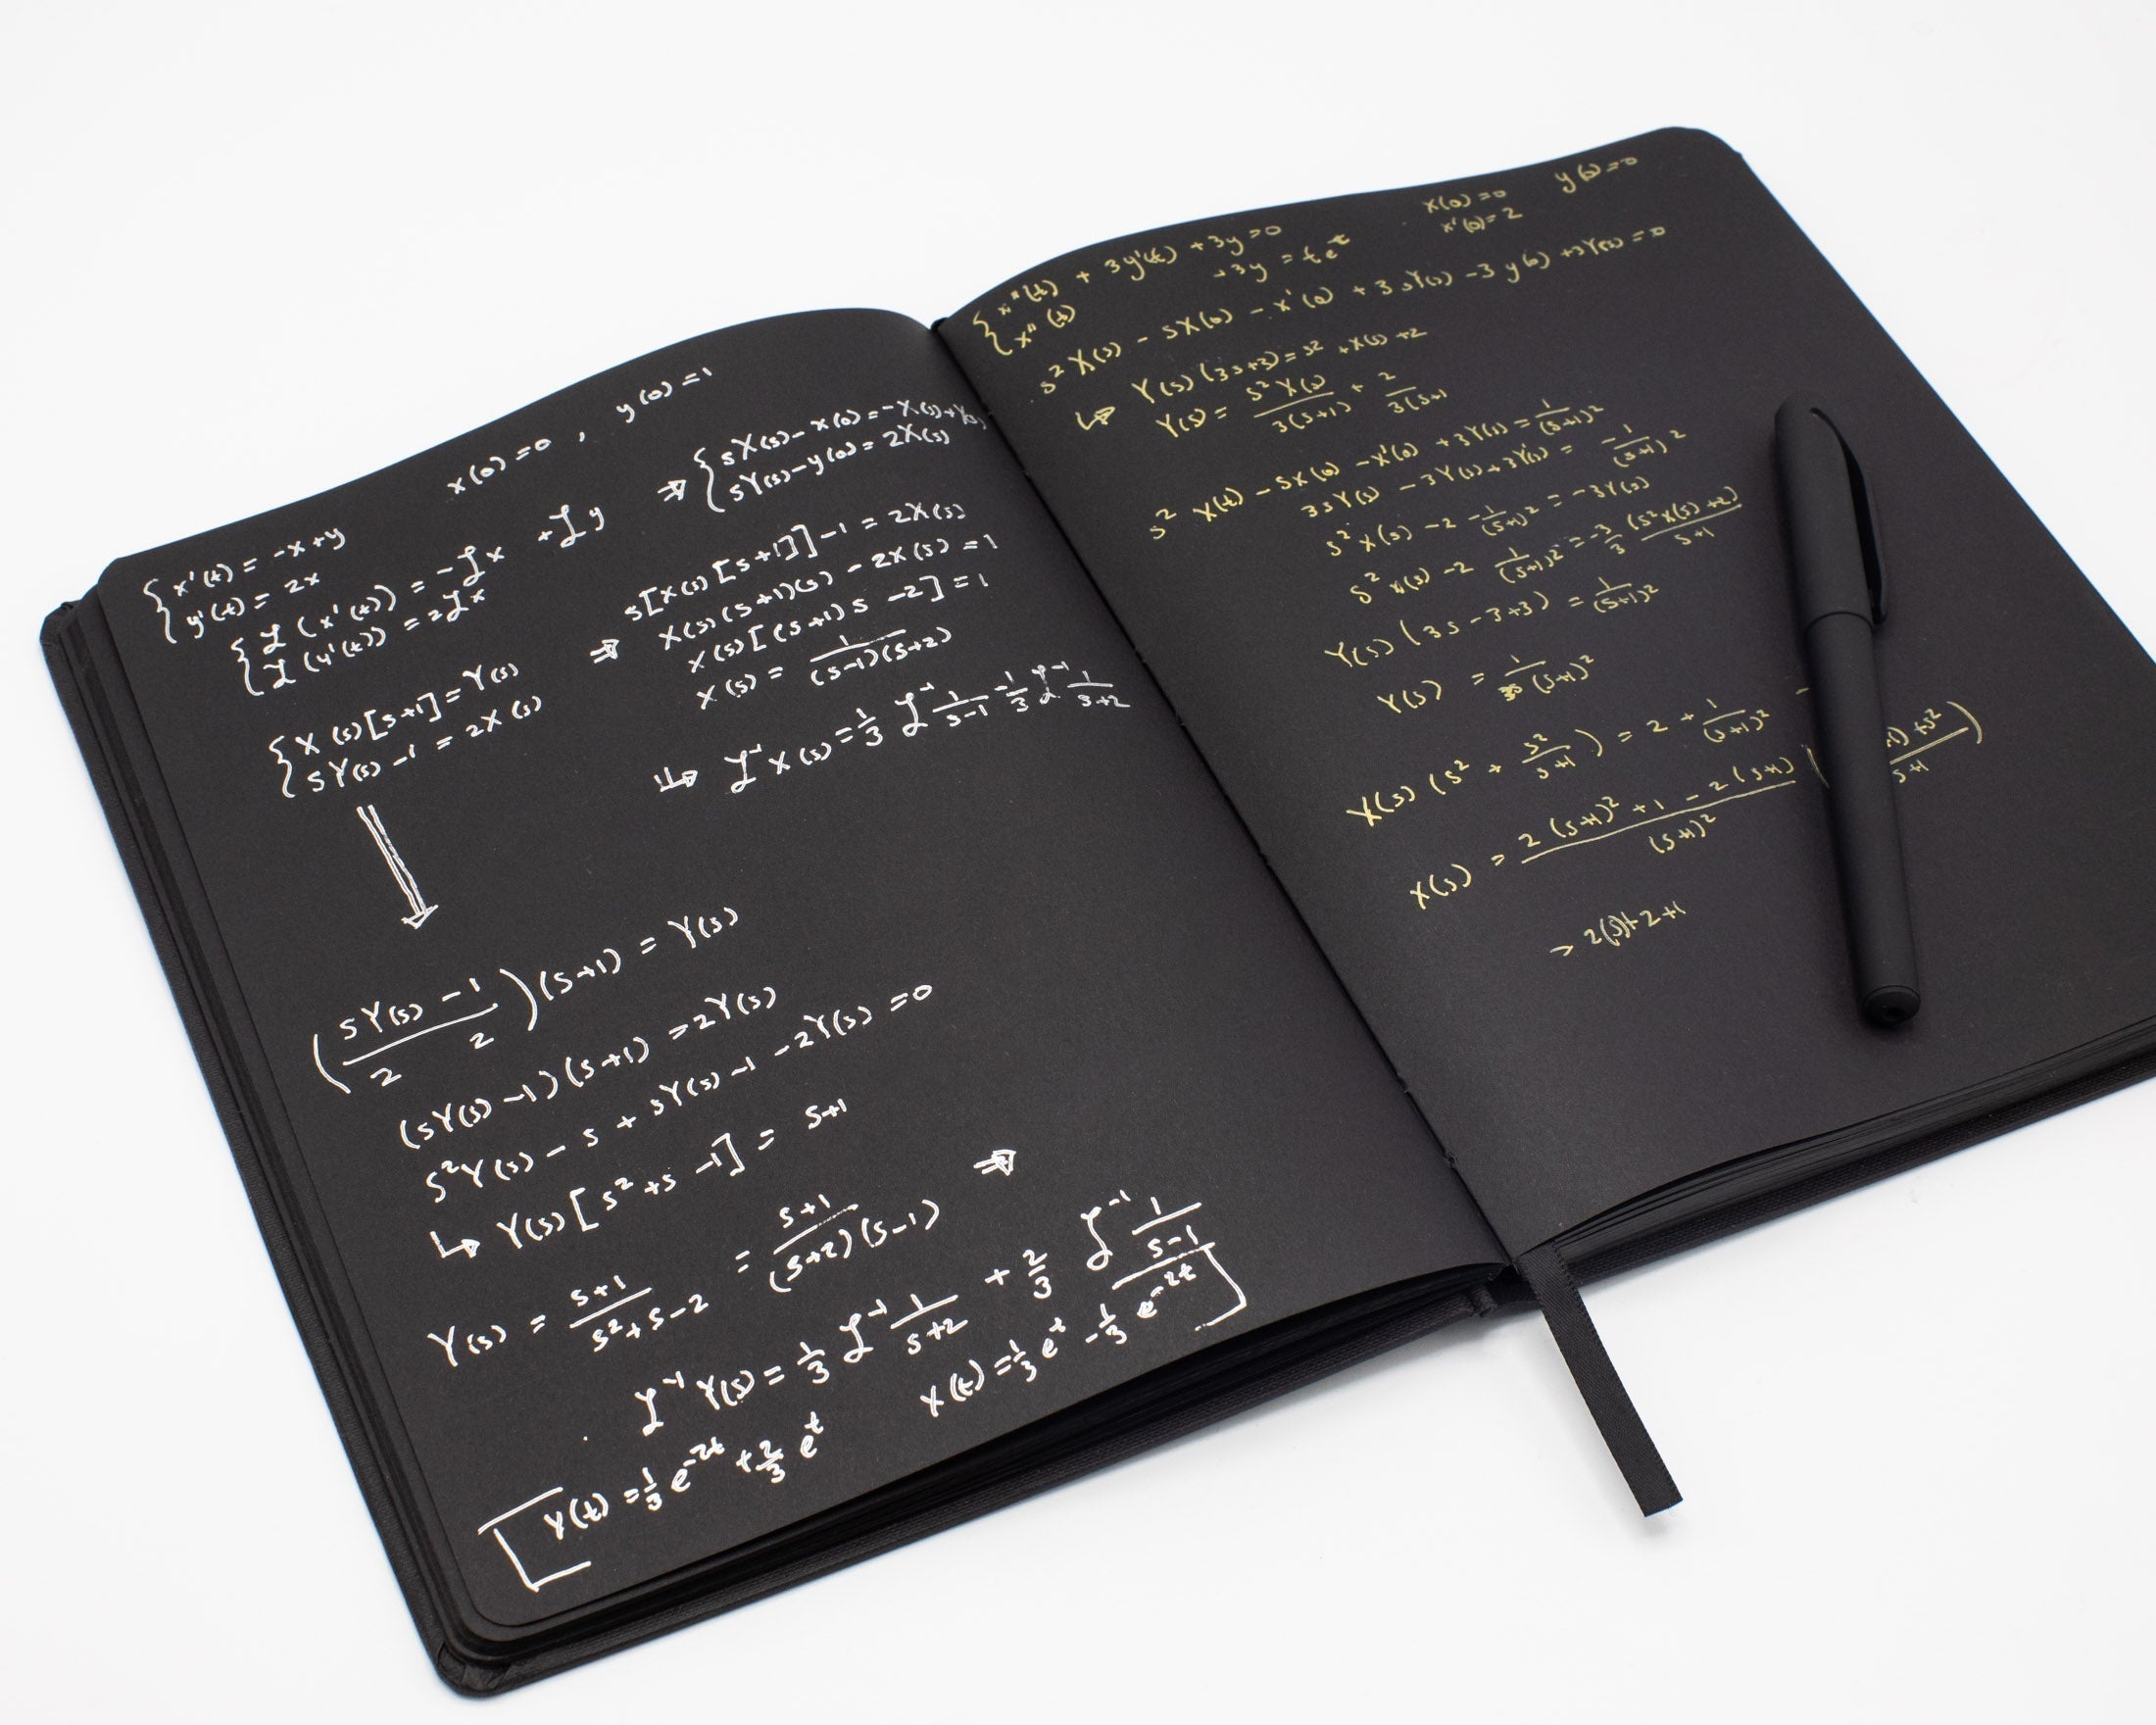 x(0)=0 , y(0)=1
{ x'(t) = -x+y
y'(t) = 2x
{ ℒ(x'(t)) = -ℒx + ℒy
ℒ(y'(t)) = 2ℒx
⇒ { sX(s)-x(0)=-X(s)+Y(s)
sY(s)-y(0)=2X(s)
{ X(s)[s+1]=Y(s)
sY(s)-1=2X(s)
⇒ s[X(s)[s+1]]-1=2X(s)
X(s)(s+1)(s)-2X(s)=1
X(s)[(s+1)s-2]=1
X(s) = 1/((s-1)(s+2))
↳ ℒ⁻¹X(s)=1/3 ℒ⁻¹ 1/(s-1) -1/3 ℒ⁻¹ 1/(s+2)
((sY(s)-1)/(2 2))(s+1)=Y(s)
(sY(s)-1)(s+1)=2Y(s)
s²Y(s)-s+sY(s)-1-2Y(s)=0
↳ Y(s)[s²+s-1]=s+1
Y(s) = (s+1)/(s²+s-2) = (s+1)/((s+2)(s-1)) ⇒
ℒ⁻¹Y(s)=1/3 ℒ⁻¹ 1/(s+2) + 2/3 ℒ⁻¹ 1/(s-1)
Y(t)=1/3 e^(-2t) +2/3 e^t
X(t)=1/3 e^t -1/3 e^(-2t)
{ x''(t) + 3y'(t) +3y=0
x''(t) +3y = te^t
x(0)=0 y(0)=0
x'(0)=2
s²X(s)-sX(0)-x'(0)+3sY(s)-3y(0)+3Y(s)=0
↳ Y(s)(3s+3)=s²+X(s)+2
Y(s) = s²X(s)/(3(s+1)) + 2/(3(s+1
s² X(t)-sX(0)-x'(0)+3Y(s)=1/(s+1)²
3sY(s)-3Y(s)+3Y(s)= -1/(s+1)²
s²X(s)-2-1/(s+1)²=-3Y(s)
s²X(s)-2 1/(s+1)²=-3/3 (s²X(s)+2)/(s+1)
Y(s)(3s-3+3)=1/(s+1)²
Y(s) = 1/(3s(s+1)²
X(s)(s² + s²/(s+1)) = 2 + 1/(s+1)² -
X(s) = (2(s+1)²+1-2(s+1))/(s+1)² ( +1)+s²/(s+1) )
→ 2(s)+2+1